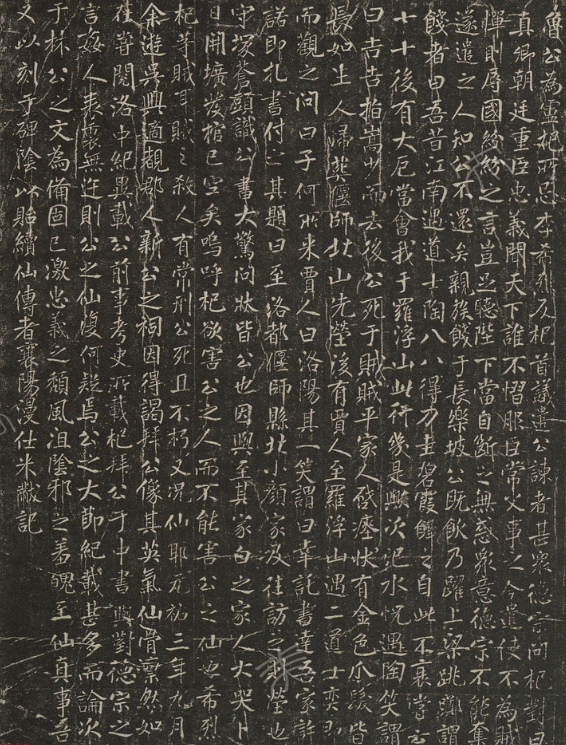 魯公為盧杞所忌李希烈反杞首議遣公諫者甚衆德宗問杞對曰
真卿朝廷重臣忠義聞天下誰不慴服臣常父事之今遣使不為賊
憚則辱國紛紛之言豈足聽陛下當自斷之無惑衆意德宗不能奪
遂遣之人知公不還矣親族餞于長樂坡公既飲乃躍上梁跳躑謂
餞者曰吾昔江南遇道士陶八八得刀圭碧霞餌之自此不衰嘗云
七十後有大厄當會我于羅浮山此行幾是歟次汜水怳遇陶笑謂
曰吉吉指嵩少而去後公死于賊賊平家人啓瘞狀有金色爪髮皆
長如生人歸葬偃師北山先塋後有賈人至羅浮山遇二道士奕即
而觀之問曰子何所來賈人曰洛陽其一笑謂曰幸託書達吾家許
諾即札書付之其題曰至洛都偃師縣北小顏家及往訪之則塋也
守塚蒼頭識公書大驚問狀皆公也因與至其家白之家人大哭卜
日開壙發棺已空矣嗚呼杞欲害公之人而不能害公之仙也希烈
杞等賊耳賊之殺人有常刑公死且不朽又況仙耶元祐三年九月
余遊吳興適覩郡人新公之祠因得謁拜公像其英氣仙骨凜然如
在昔聞洛中紀異載公前事考史所載杞拜公于中書與對德宗之
言姦人表裏無迕則公之仙復何疑焉公之大節紀載甚多而論次
于林公之文為備固已激忠義之頽風沮陰邪之羞魄至仙真事吾
又以刻于碑陰以貽續仙傳者襄陽漫仕米黻記